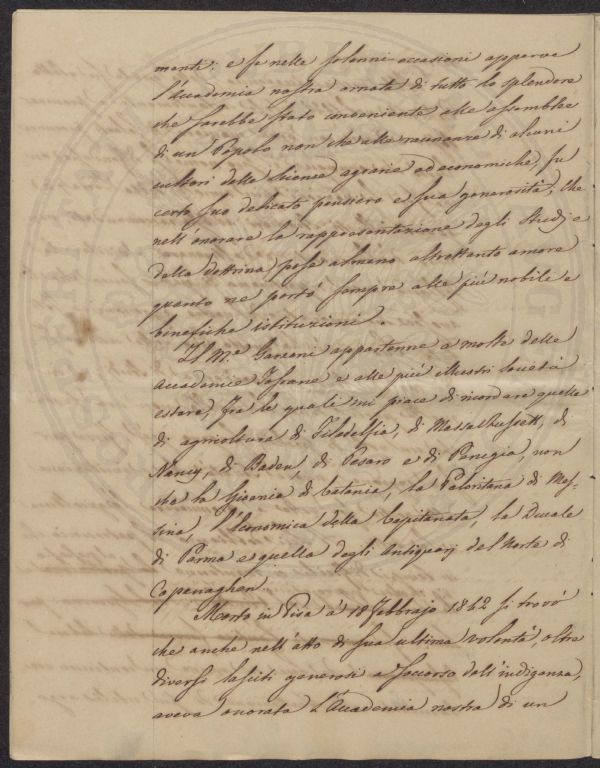 mente: e se nelle solenni occasioni apparve
l'Accademia nostra ornata di tutto lo splendore
che sarebbe stato conveniente alle assemblee
di un Popolo non che alle raunanze di alcuni
cultori delle Scienze agrarie ed economiche, fu
certo suo delicato pensiero e sua generosità, che
nell'onorare la rappresentazione degli Studj e
della dottrina, pose almeno altrettanto amore
quanto ne portò sempre alle più nobili e
benefiche istituzioni.
Il M.e Garzoni appartenne a molte delle
Accademie Toscane e alle più illustri Società
estere, fra le quali mi piace di ricordare quelle
di agricoltura di Filadelfia, di Massachussett, di
Nancy, di Baden, di Pesaro e di Perugia, non
che la Gioenia di Catania, la Peloritana di Mes-
sina, l'Economica della Capitanata, la Ducale
di Parma e quella degli Antiquarj del Norte di
Copenaghen.
Morto in Pisa a' 18 Febbrajo 1842 si trovò
che anche nell'atto di sua ultima volontà, oltre
diversi lasciti generosi a soccorso dell'indigenza,
aveva onorata l'Accademia nostra di un